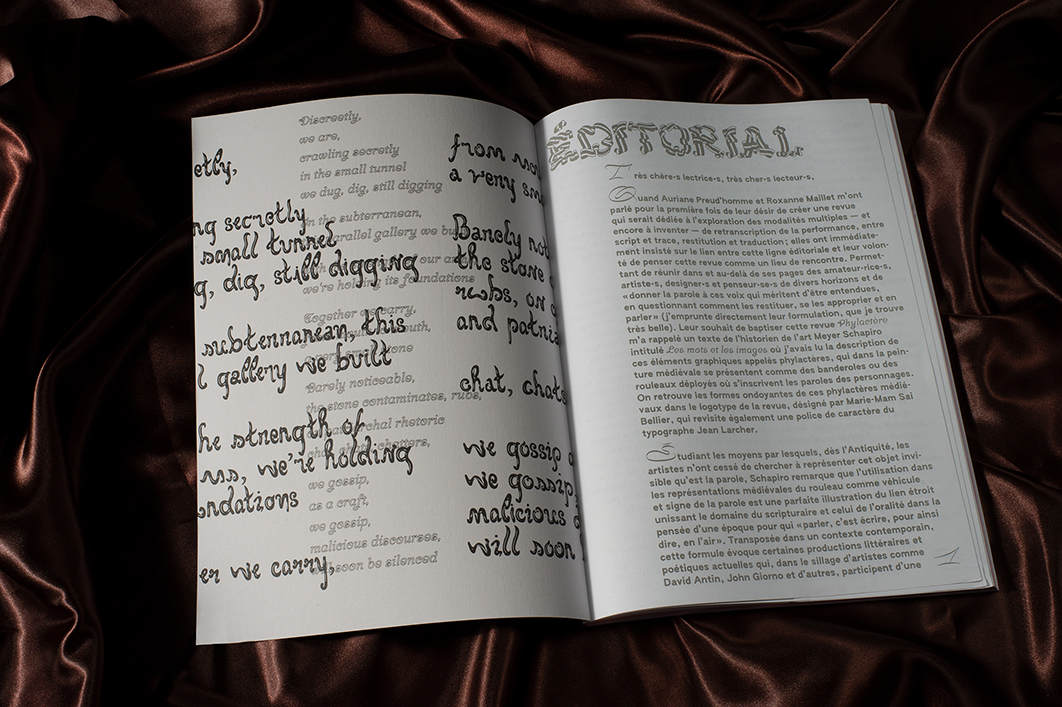 Discreetly,
we are,
crawling secretly
in the small tunnel
we dug, dig, still digging
In the subterranean,
parallel gallery we
our
we're holding its foundations
Together we carry,
Barely noticeable,
the stone contaminates, rubs,
rhetoric
chatters,
we gossip,
as a craft,
we gossip,
malicious discourses,
soon be silenced
etly,
ng secretly
small tunnel
g, dig, still digging
subterranean, this
l gallery we built
he strength of
ms, we're holding
undations
er we carry,
from
a very
Barely
the stone
rubs, on
and
chat,
we gossip
we gossip,
malicious
will soon
ÉDITORIAL
Très chère·s lectrice·s, très cher·s lecteur·s,
Quand Auriane Preud'homme et Roxanne Maillet m'ont
parlé pour la première fois de leur désir de créer une revue
qui serait dédiée à l'exploration des modalités multiples — et
encore à inventer — de retranscription de la performance, entre
script et trace, restitution et traduction ; elles ont immédiate-
ment insisté sur le lien entre cette ligne éditoriale et leur volon-
té de penser cette revue comme un lieu de rencontre. Permet-
tant de réunir dans et au-delà de ses pages des amateur·rice·s,
artiste·s, designer·s et penseur·se·s de divers horizons et de
«donner la parole à ces voix qui méritent d'être entendues,
en questionnant comment les restituer, se les approprier et en
parler» (j'emprunte directement leur formulation, que je trouve
très belle). Leur souhait de baptiser cette revue Phylactère
m'a rappelé un texte de l'historien de l'art Meyer Schapiro
intitulé Les mots et les images où j'avais lu la description de
ces éléments graphiques appelés phylactères, qui dans la pein-
ture médiévale se présentent comme des banderoles ou des
rouleaux déployés où s'inscrivent les paroles des personnages.
On retrouve les formes ondoyantes de ces phylactères médié-
vaux dans le logotype de la revue, désigné par Marie-Mam Sai
Bellier, qui revisite également une police de caractère du
typographe Jean Larcher.
Étudiant les moyens par lesquels, dès l'Antiquité, les
artistes n'ont cessé de chercher à représenter cet objet invi-
sible qu'est la parole, Schapiro remarque que l'utilisation dans
les représentations médiévales du rouleau comme véhicule
et signe de la parole est une parfaite illustration du lien étroit
unissant le domaine du scripturaire et celui de l'oralité dans la
pensée d'une époque pour qui «parler, c'est écrire, pour ainsi
dire, en l'air». Transposée dans un contexte contemporain,
cette formule évoque certaines productions littéraires et
poétiques actuelles qui, dans le sillage d'artistes comme
David Antin, John Giorno et d'autres, participent d'une
1